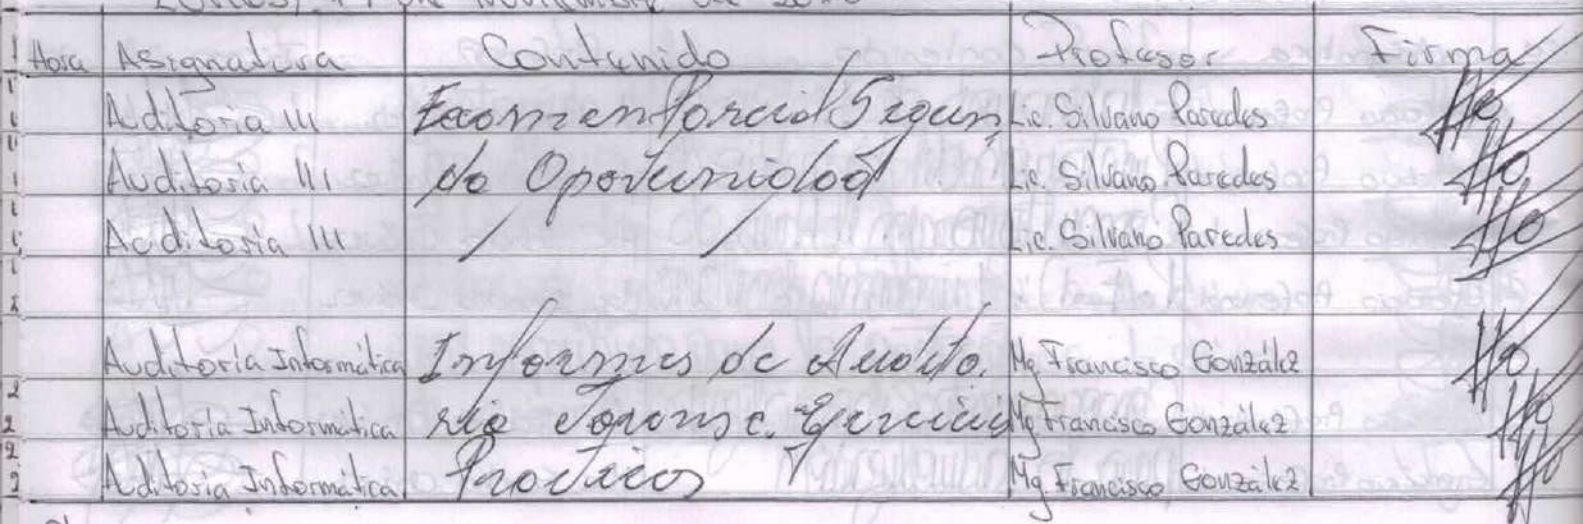 Hora Asignatura Contenido Profesor Firma
Auditoria III Examen Parcial Segun Lic. Silvano Paredes
Auditoria III da Oportunidad Lic. Silvano Paredes
Auditoria III Lic. Silvano Paredes
Auditoría Informática Informes de Audito. Mg Francisco González
Auditoría Informática ria Forense. Ejercicios Mg Francisco González
Auditoria Informática Practicos Mg Francisco González